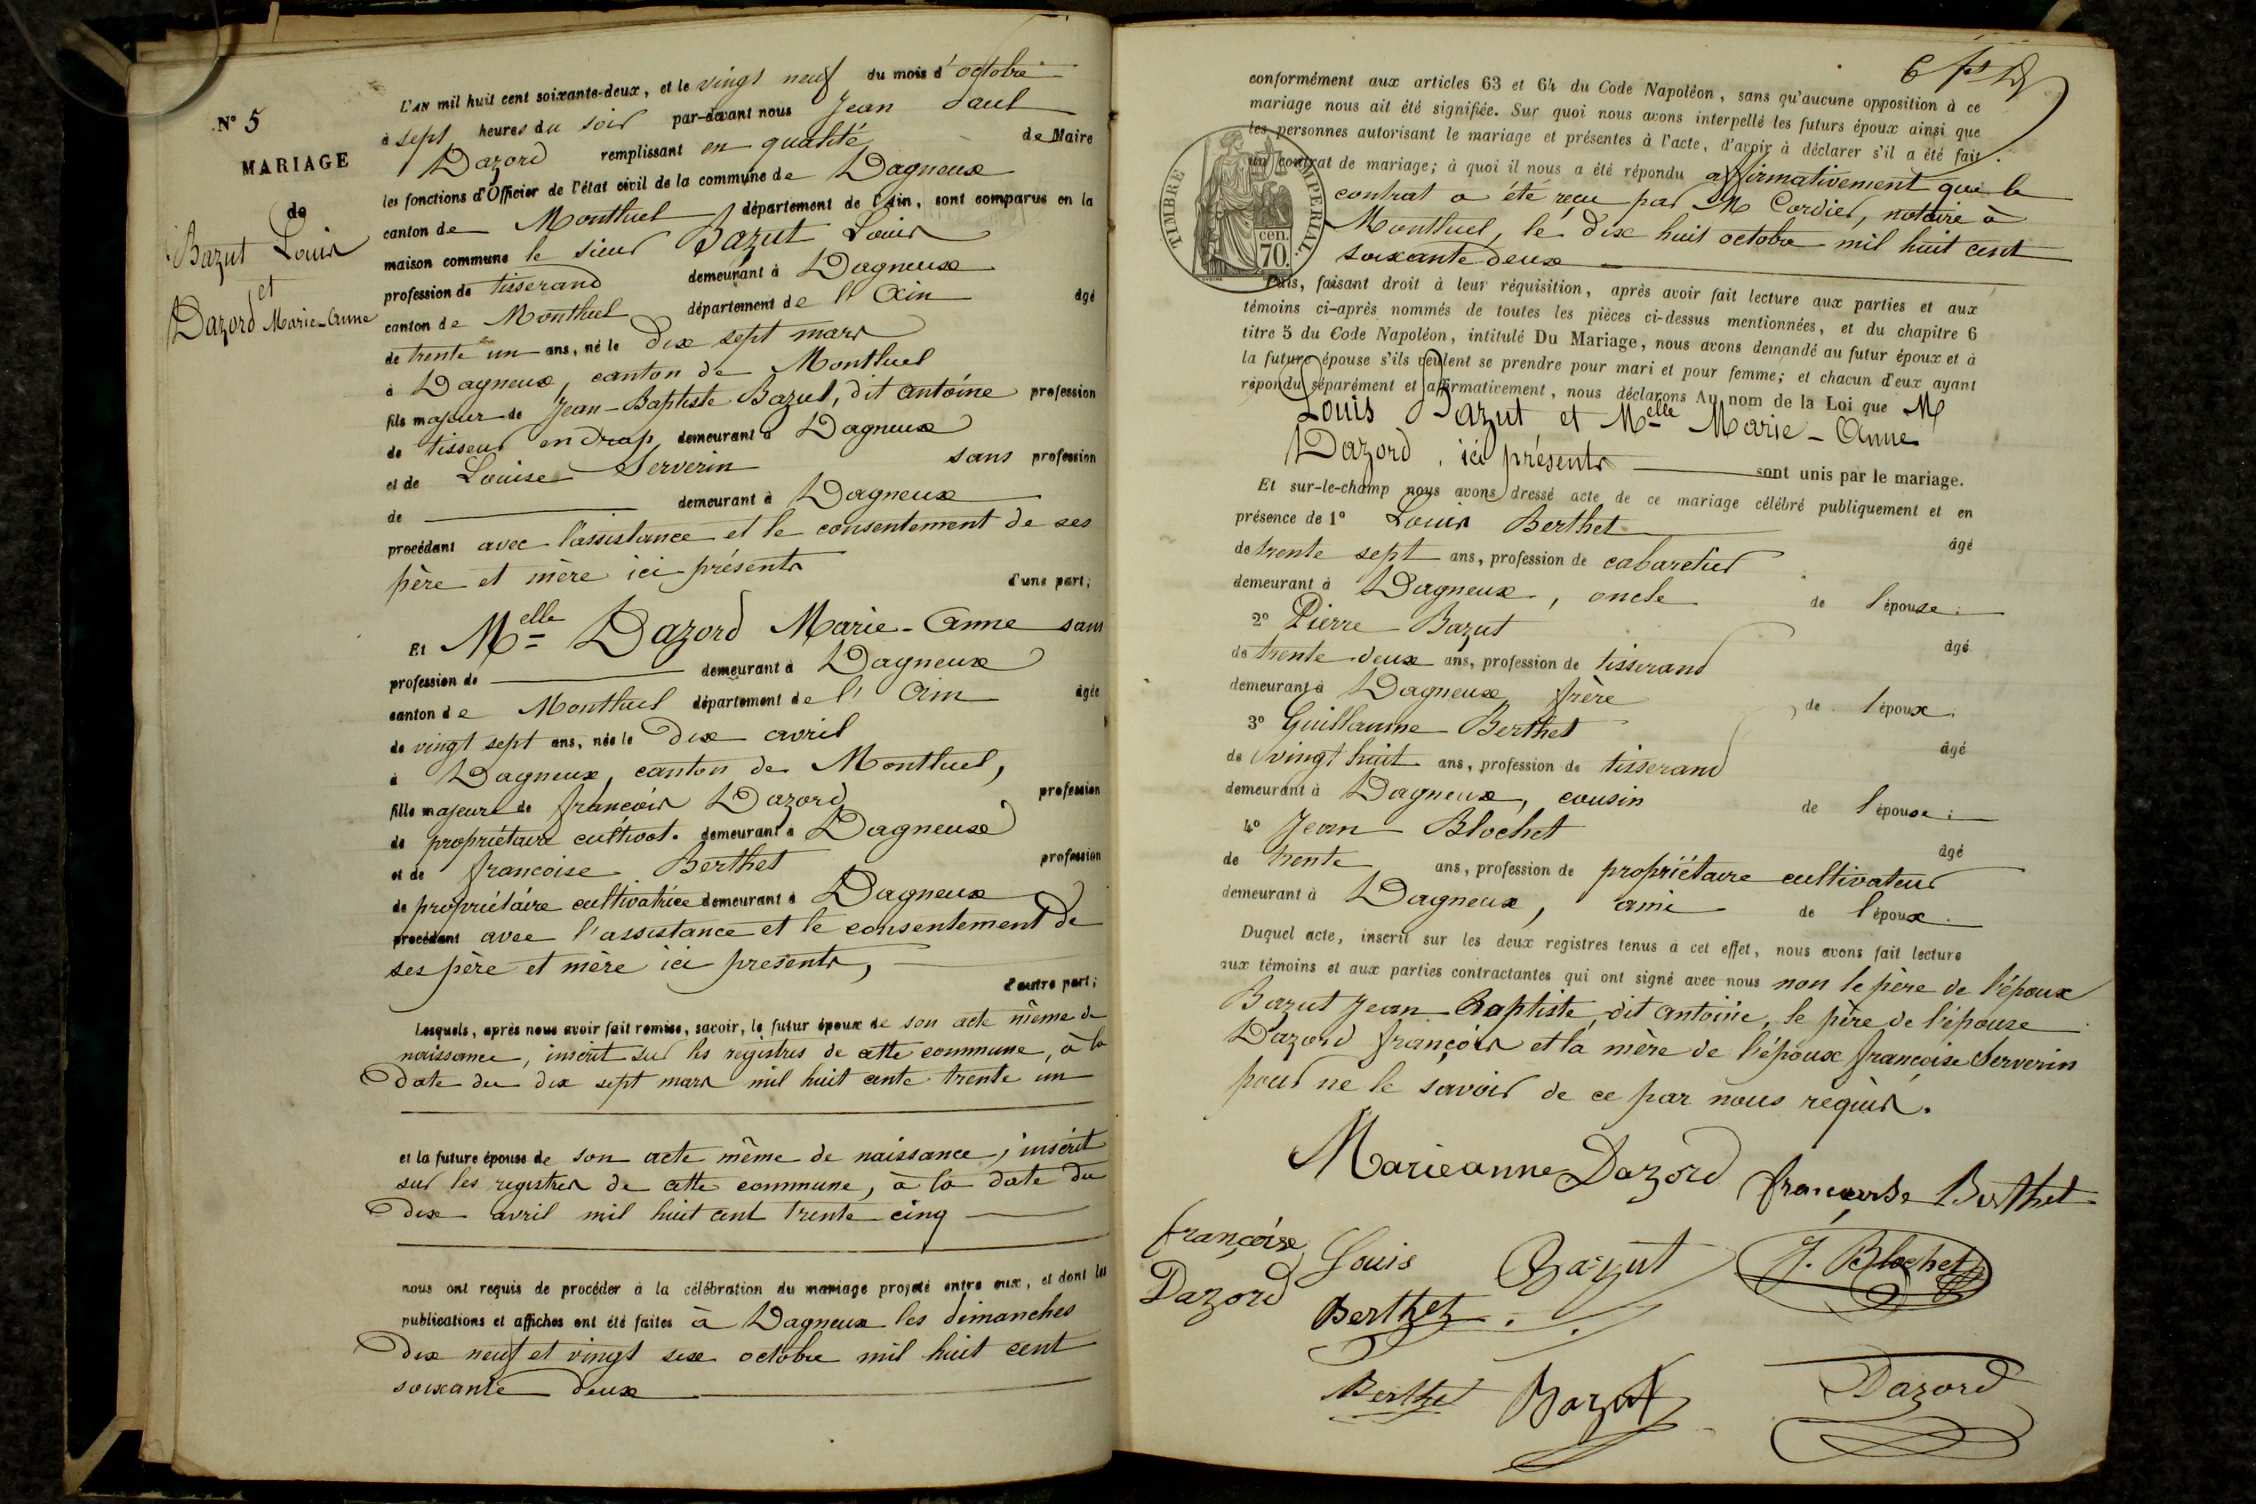 N° 5
MARIAGE
de
Bazut Louis
et
Dazord Marie-Anne
L'AN mil huit cent soixante-deux, et le vingt neuf du mois d'octobre
à sept heures du soir par-devant nous Jean Paul
Dazord remplissant en qualité de Maire
les fonctions d'Officier de l'état civil de la commune de Dagneux
canton de Montluel département de l'Ain, sont comparus en la
maison commune le sieur Bazut Louis
profession de tisserand demeurant à Dagneux
canton de Montluel département de l'Ain âgé
de trente un ans, né le dix sept mars
à Dagneux, canton de Montluel
fils majeur de Jean-Baptiste Bazut, dit Antoine profession
de tisseur en drap demeurant à Dagneux
et de Louise Serverin sans profession
de demeurant à Dagneux
procédant avec l'assistance et le consentement de ses
père et mère ici présents d'une part;
Et Melle Dazord Marie-Anne sans
profession de demeurant à Dagneux
canton de Montluel département de l'Ain âgée
de vingt sept ans, née le dix avril
à Dagneux, canton de Montluel,
fille majeure de françois Dazord profession
de propriétaire cultivat. demeurant à Dagneux
et de francoise Berthet profession
de propriétaire cultivatrice demeurant à Dagneux
procédant avec l'assistance et le consentement de
ses père et mère ici présents,
d'autre part;
Lesquels, après nous avoir fait remise, savoir, le futur époux de son acte même de
naissance, inscrit sur les registres de cette commune, à la
date du dix sept mars mil huit cente trente un
et la future épouse de son acte même de naissance, inscrit
sur les registres de cette commune, à la date du
dix avril mil huit cent trente cinq
nous ont requis de procéder à la célébration du mariage projeté entre eux, et dont les
publications et affiches ont été faites à Dagneux les dimanches
dix neuf et vingt six octobre mil huit cent
soixante deux
conformément aux articles 63 et 64 du Code Napoléon, sans qu'aucune opposition à ce
mariage nous ait été signifiée. Sur quoi nous avons interpellé les futurs époux ainsi que
les personnes autorisant le mariage et présentes à l'acte, d'avoir à déclarer s'il a été fait
un contrat de mariage; à quoi il nous a été répondu affirmativement que le
contrat a été reçu par M Cordier, notaire à
Montluel, le dix huit octobre mil huit cent
soixante deux
TIMBRE IMPERIAL.
cen.
70.
Puis, faisant droit à leur réquisition, après avoir fait lecture aux parties et aux
témoins ci-après nommés de toutes les pièces ci-dessus mentionnées, et du chapitre 6
titre 5 du Code Napoléon, intitulé Du Mariage, nous avons demandé au futur époux et à
la future épouse s'ils veulent se prendre pour mari et pour femme; et chacun d'eux ayant
répondu séparément et affirmativement, nous déclarons Au nom de la Loi que M
Louis Bazut et Melle Marie-Anne
Dazord, ici présents sont unis par le mariage.
Et sur-le-champ nous avons dressé acte de ce mariage célébré publiquement et en
présence de 1° Louis Berthet âgé
de trente sept ans, profession de cabaretier
demeurant à Dagneux, oncle de l'épouse;
2° Pierre Bazut âgé
de trente deux ans, profession de tisserand
demeurant à Dagneux frère de l'époux;
3° Guillaume Berthet âgé
de vingt huit ans, profession de tisserand
demeurant à Dagneux, cousin de l'épouse;
4° Jean Blochet âgé
de trente ans, profession de propriétaire cultivateur
demeurant à Dagneux, ami de l'époux.
Duquel acte, inscrit sur les deux registres tenus à cet effet, nous avons fait lecture
aux témoins et aux parties contractantes qui ont signé avec nous non le père de l'époux
Bazut Jean-Baptiste dit Antoine, le père de l'épouse
Dazord françois et la mère de l'époux francoise Serverin
pour ne le savoir de ce par nous requis.
Marieanne Dazord francoise Berthet
françoise Dazord
Louis Bazut J. Blochet
Berthet
Berthet Bazut Dazord